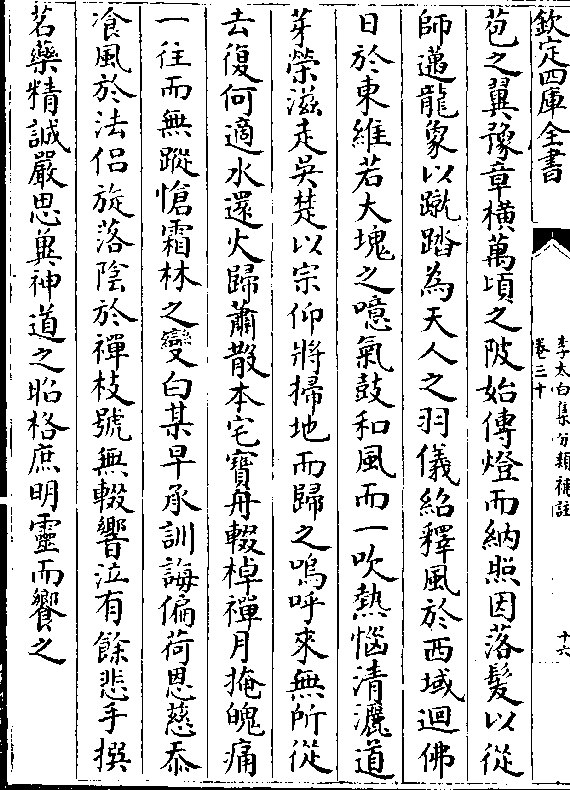 欽定四庫全書
李太白集分類補註
卷三十
十六
苞之翼豫章横萬頃之陂始傳燈而納照因落髮以從
師邁龍象以蹴踏為天人之羽儀紹釋風於西域迴佛
日於東維若大塊之噫氣鼓和風而一吹熱惱清灑道
芽榮滋走吳楚以宗仰將掃地而歸之嗚呼來無所從
去復何適水還火歸蕭散本宅寶舟輟棹禪月掩魄痛
一往而無蹤愴霜林之變白某早承訓誨偏荷恩慈忝
飡風於法侣旋落陰於禪枝號無輟響泣有餘悲手撰
茗藥精誠嚴思冀神道之昭格庶明靈而饗之